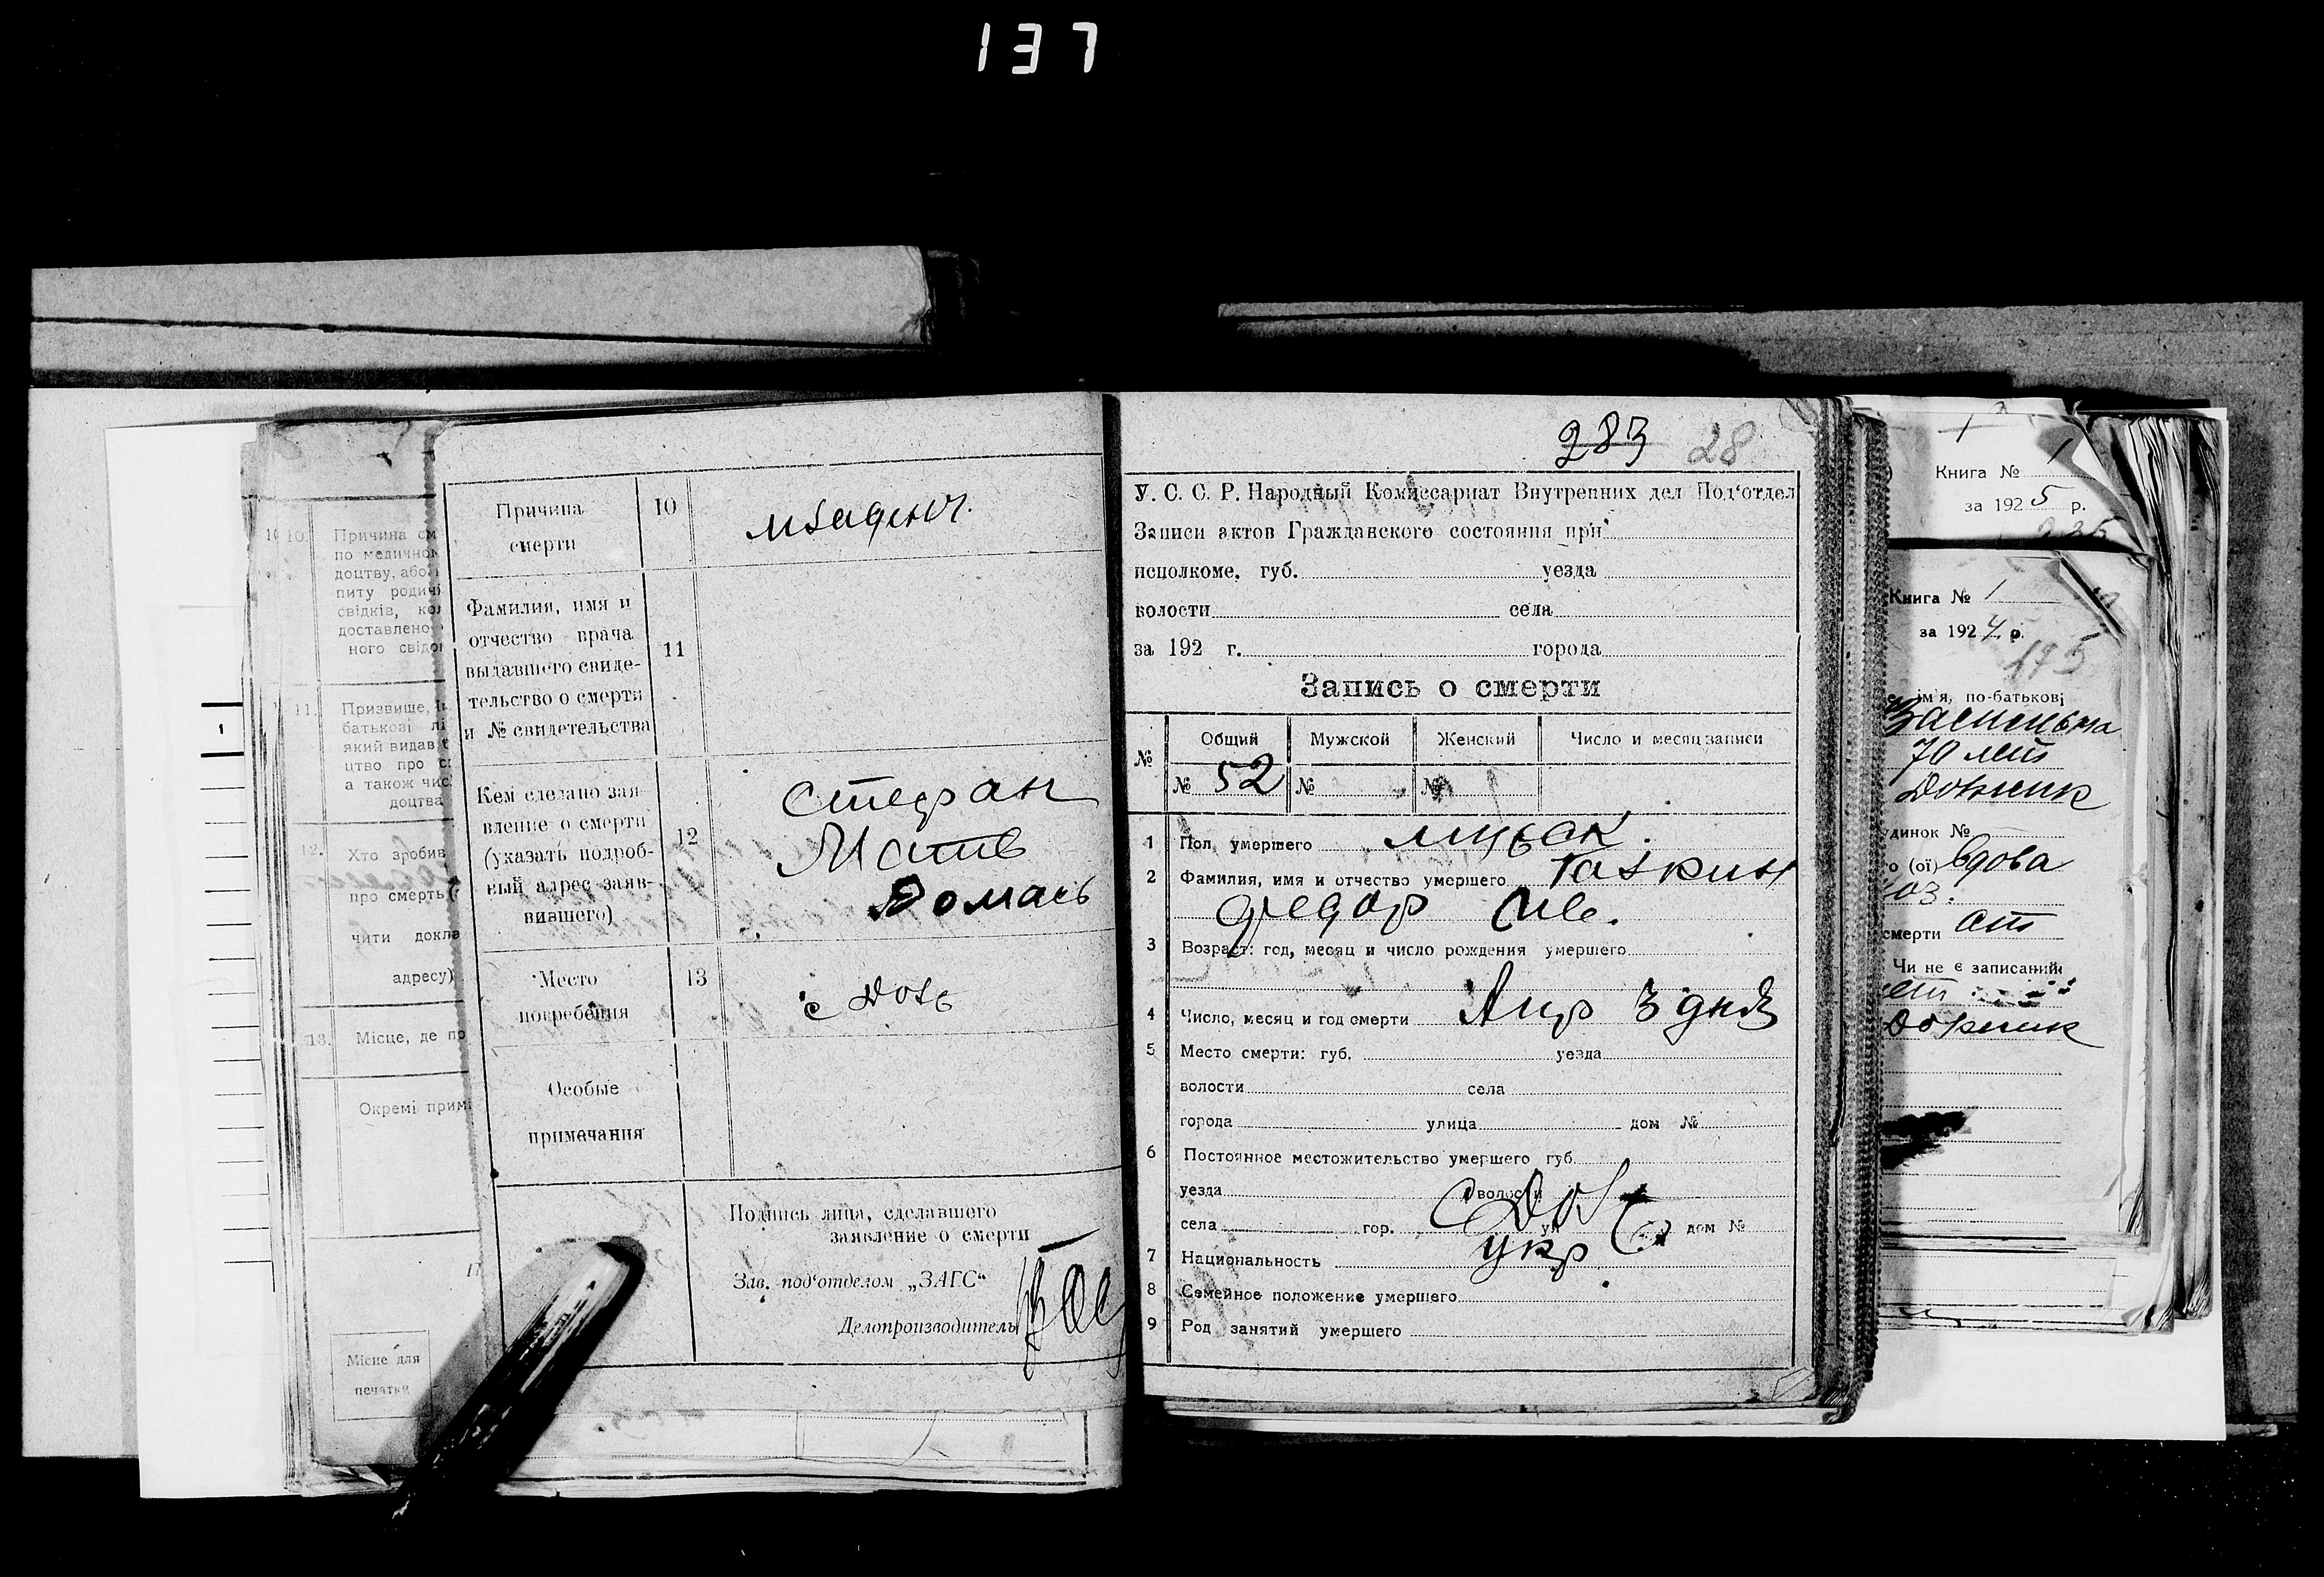 137
10.
Причина см
по медичном
доцтву, або
питу родичі
свідків, кол
доставлено
ного свідо
11.
Призвище,
батькові лі
який видав
цтво про с
а також чис
доцтва
12.
Хто зробив
про смерть
чити докла
адресу)
13.
Місце, де по
Окремі примі
Місце для
печатки
1
Причина
смерти
10
младенч.
Фамилия, имя и
отчество врача
выдавшего свиде-
тельство о смерти
и № свидетельства
11
Кем сделано зая-
вление о смерти
(указать подроб-
ный адрес заяв-
вившего)
12
Стефан
Домась
Место
погребения
13
Особые
примечания
Подпись лица, сделавшего
заявление о смерти
Зав. под'отделом „ЗАГС“
Делопроизводитель
283 28
У. С. С. Р. Народный Комиссариат Внутренних дел Под'отдел
Записи актов Гражданского состояния при
исполкоме, губ. уезда
волости села
за 192 г. города
Запись о смерти
№ Общий Мужской Женский Число и месяц записи
№ 52 № №
1 Пол умершего мужск.
2 Фамилия, имя и отчество умершего Галкин
Федор Ив.
3 Возраст: год, месяц и число рождения умершего
4 Число, месяц и год смерти Апр 3 дня
5 Место смерти: губ. уезда
волости села
города улица дом №
6 Постоянное местожительство умершего губ.
уезда волости
села гор. ул дом №
7 Национальность укр
8 Семейное положение умершего
9 Род занятий умершего
Книга № 1
за 1925 р.
Книга № 1
за 1924 р.
195
ім'я, по-батькові
70 лет
динок №
о (ої) вдова
смерти
Чи не є записаний